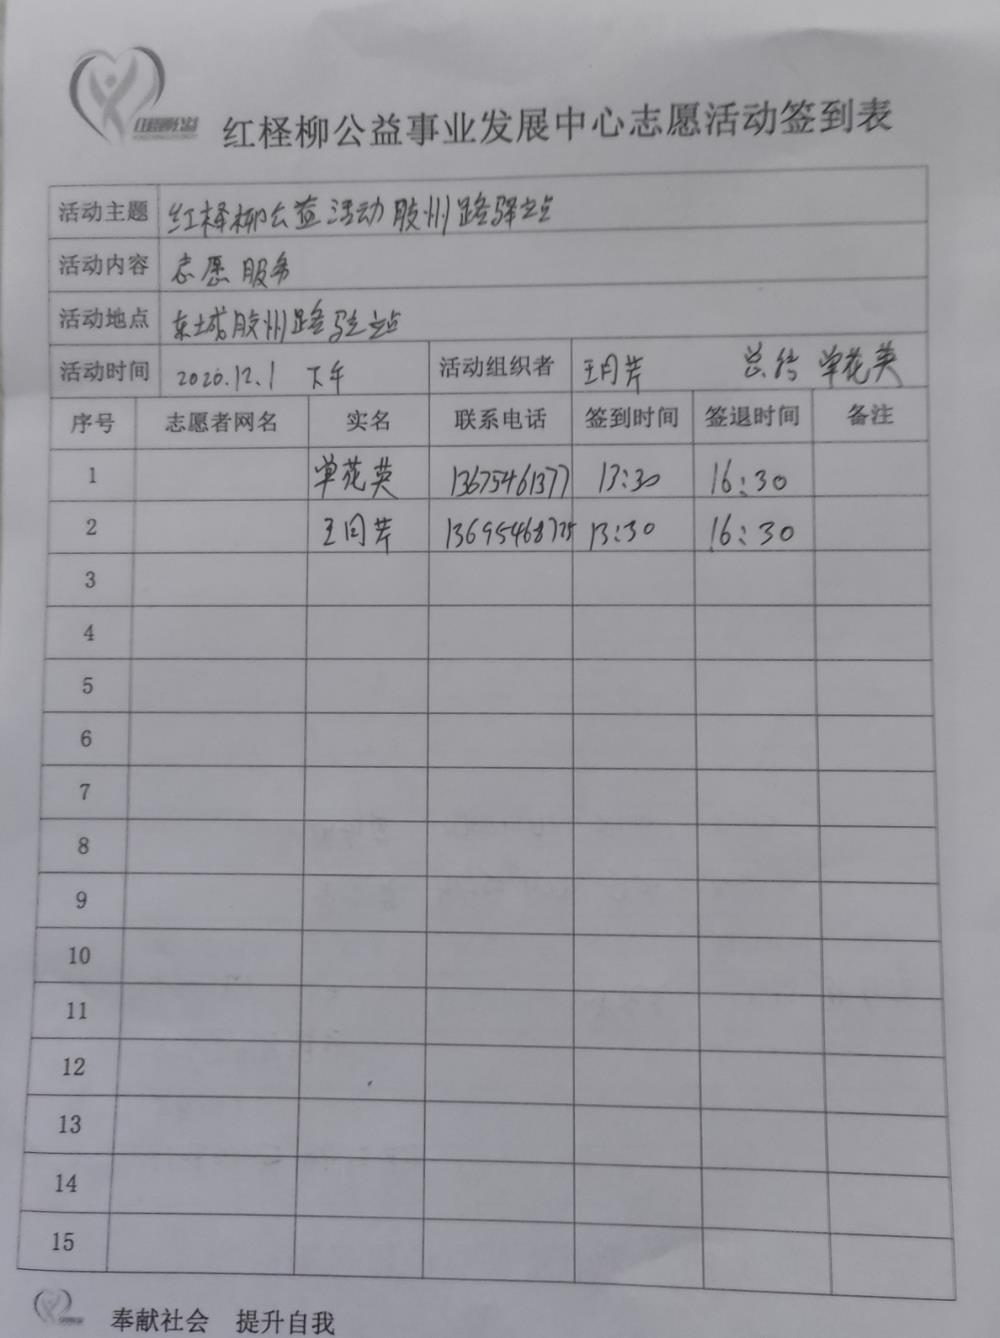 红柽柳公益事业发展中心志愿活动签到表
活动主题 红柽柳公益活动胶州路驿站
活动内容 志愿服务
活动地点 东城胶州路驿站
活动时间 2020.12.1 下午 活动组织者 王月芹 总结 单花英
序号 志愿者网名 实名 联系电话 签到时间 签退时间 备注
1 单花英 13675461377 13:30 16:30
2 王月芹 13695468725 13:30 16:30
3
4
5
6
7
8
9
10
11
12
13
14
15
奉献社会 提升自我